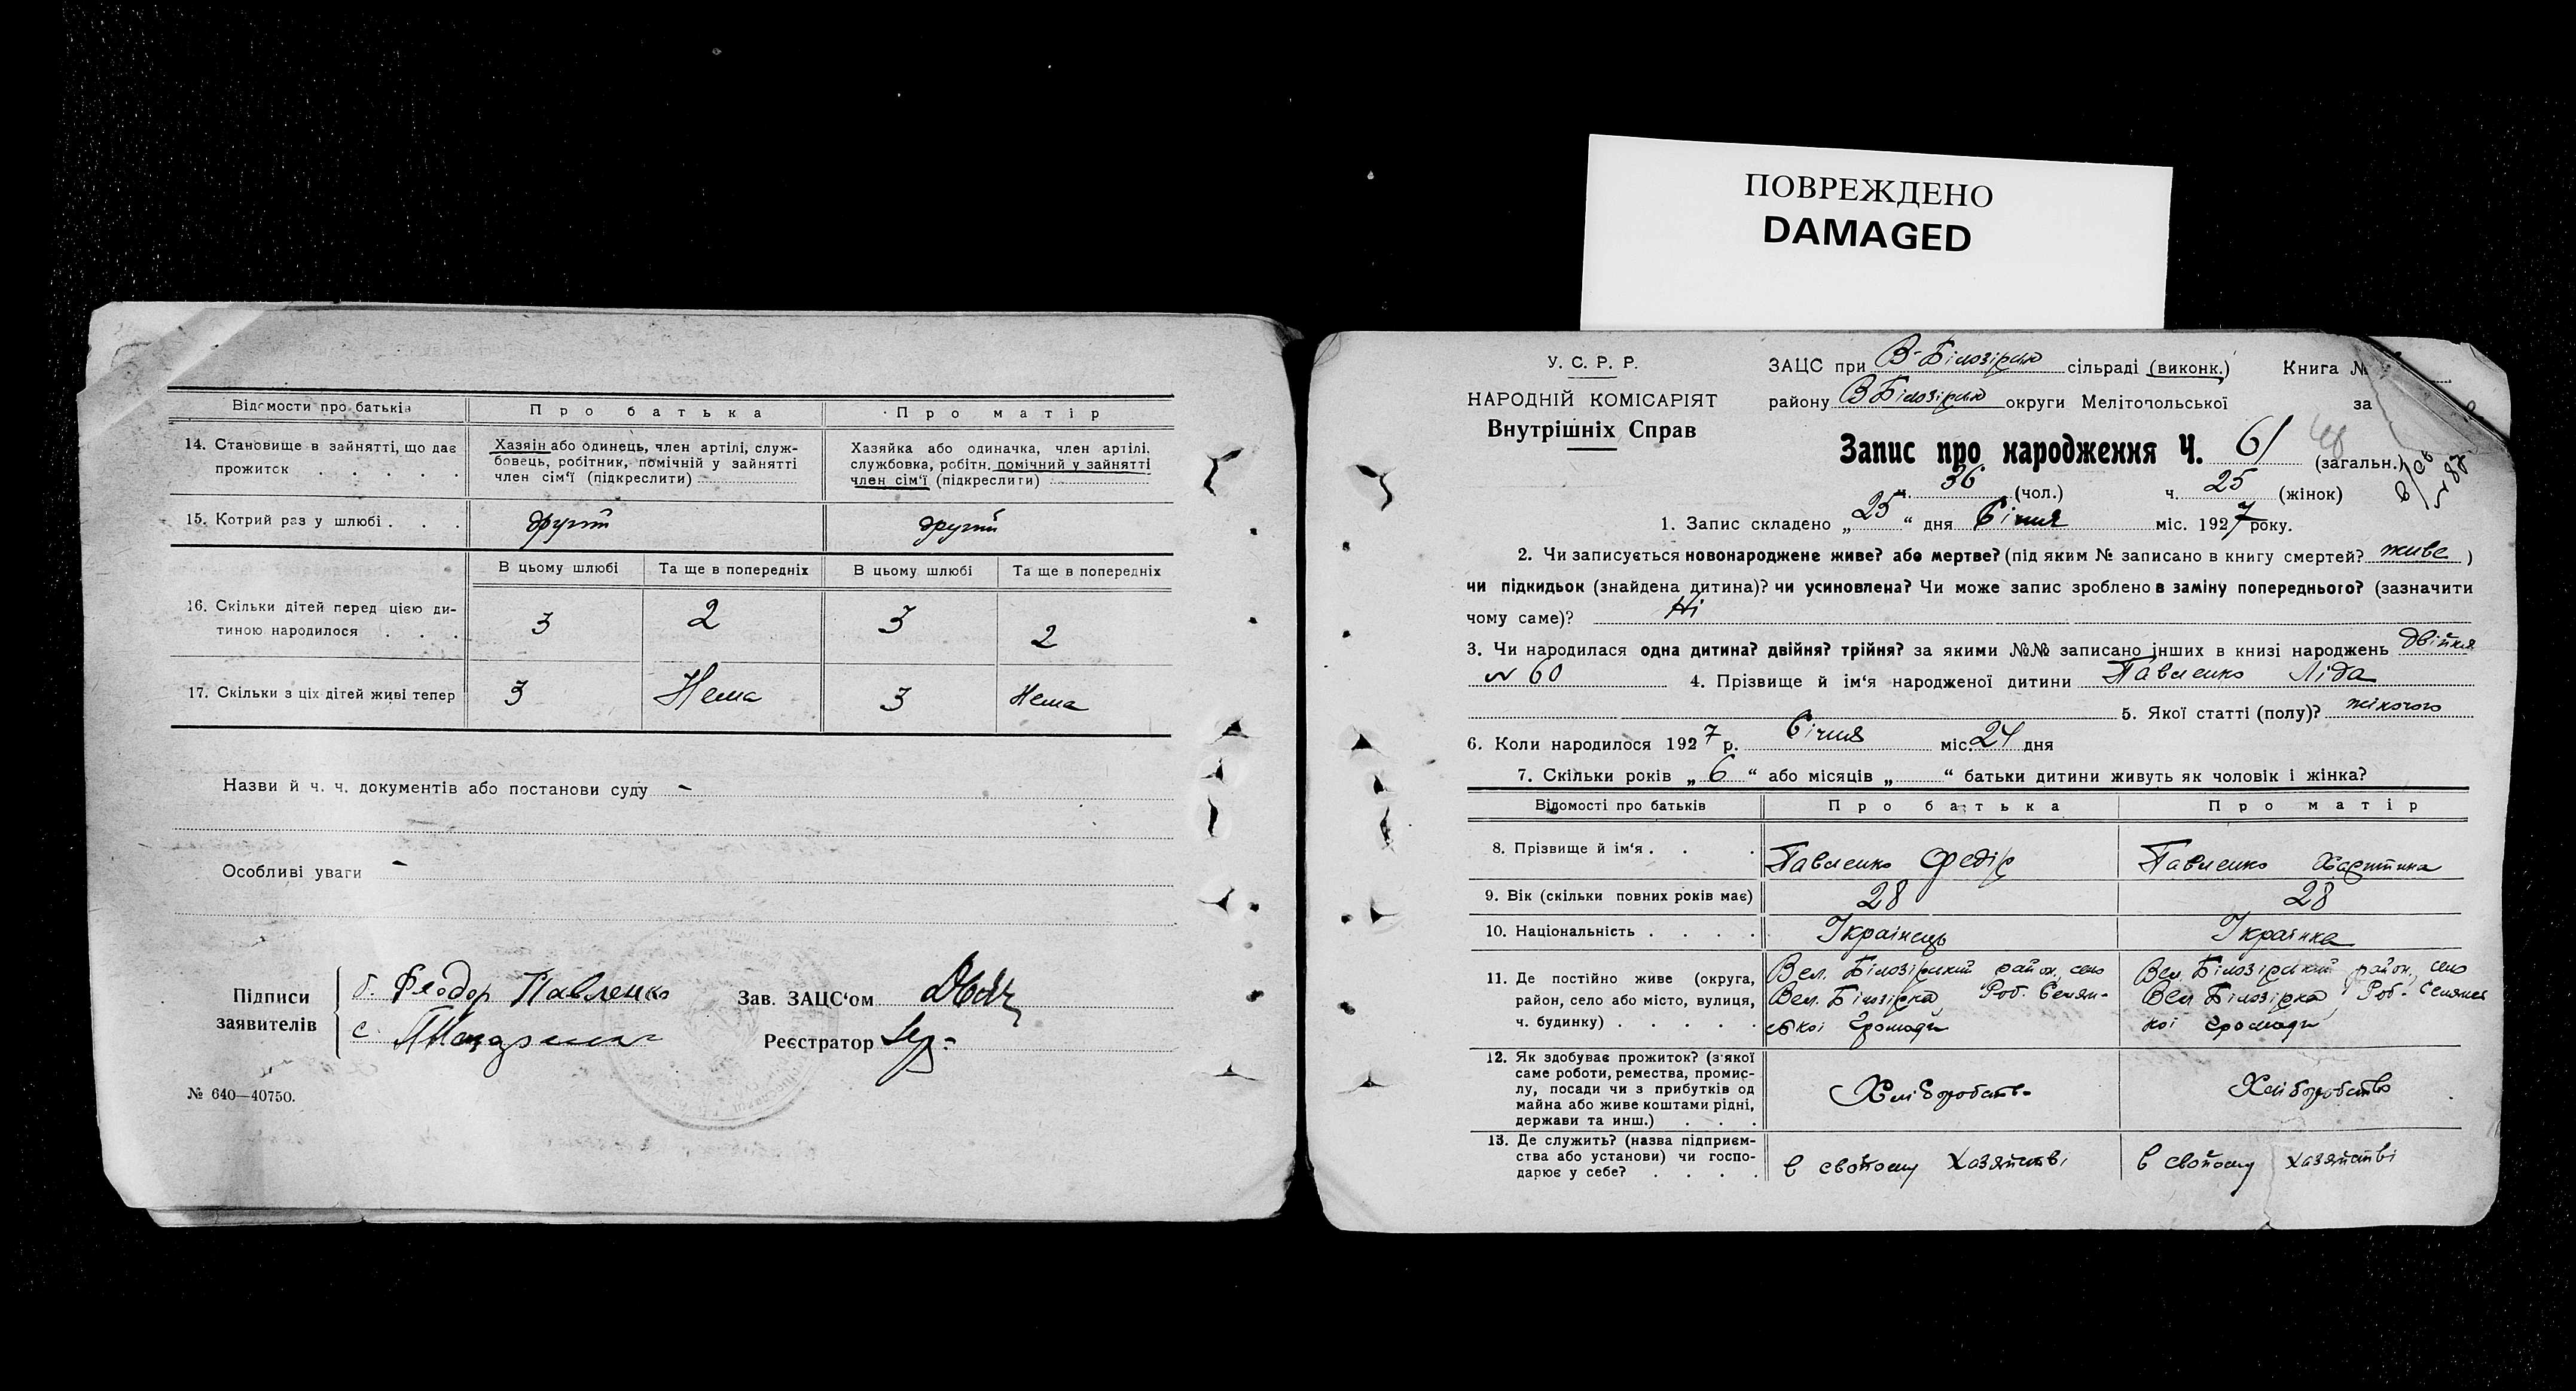 ПОВРЕЖДЕНО
DAMAGED
Відомости про батьків
Про батька
Про матір
14. Становище в зайнятті, що дає прожиток . . . .
Хазяін або одинець, член артілі, служ-
бовець, робітник, помічній у зайнятті
член сім'ї (підкреслити)
Хазяйка або одиначка, член артілі,
службовка, робітн. помічний у зайнятті
член сім'ї (підкреслити)
15. Котрий раз у шлюбі . . .
другий
другий
В цьому шлюбі
Та ще в попередніх
В цьому шлюбі
Та ще в попередніх
16. Скільки дітей перед цією ди-
тиною народилося . . .
3
2
3
2
17. Скільки з ціх дітей живі тепер
3
Нема
3
Нема
Назви й ч. ч. документів або постанови суду -
Особливі уваги -
Підписи
заявителів
б. Феодор Павленко
с.
Зав. ЗАЦС'ом
Реєстратор
№ 640—40750.
У. С. Р. Р.
НАРОДНІЙ КОМІСАРІЯТ
Внутрішніх Справ
ЗАЦС при В-Білозірск сільраді (виконк.) Книга №
району В Білозірск округи Мелітопольської за
Запис про народження Ч. 61 (загальн.)
ч. 36 (чол.) ч. 25 (жінок)
1. Запис складено „25“ дня Січня міс. 1927 року.
2. Чи записується новонароджене живе? або мертве? (під яким № записано в книгу смертей? живе )
чи підкидьок (знайдена дитина)? чи усиновлена? Чи може запис зроблено в заміну попереднього? (зазначити
чому саме)? Ні
3. Чи народилася одна дитина? двійня? трійня? за якими №№ записано інших в книзі народжень двійня
№ 60 4. Прізвище й ім'я народженої дитини Павленко Ліда
5. Якої статті (полу)? жіночого
6. Коли народилося 1927 р. Січня міс. 24 дня
7. Скільки років „6“ або місяців „ “ батьки дитини живуть як чоловік і жінка?
Відомості про батьків
Про батька
Про матір
8. Прізвище й ім'я . . .
Павленко Федір
Павленко Христина
9. Вік (скільки повних років має)
28
28
10. Національність . . . .
Українець
Українка
11. Де постійно живе (округа,
район, село або місто, вулиця,
ч. будинку) . . . . .
Вел. Білозірський район, село
Вел. Білозірка Роб. Селян-
ської громади
Вел. Білозірський район, село
Вел Білозірка Роб- Селянсь
кої громади
12. Як здобуває прожиток? (з якої
саме роботи, ремества, промис-
лу, посади чи з прибутків од
майна або живе коштами рідні,
держави та инш.) . . .
Хліборобств.
Хліборобство
13. Де служить? (назва підприєм-
ства або установи) чи госпо-
дарює у себе? . . . .
в свойому хазяйстві
в свойому хазяйстві